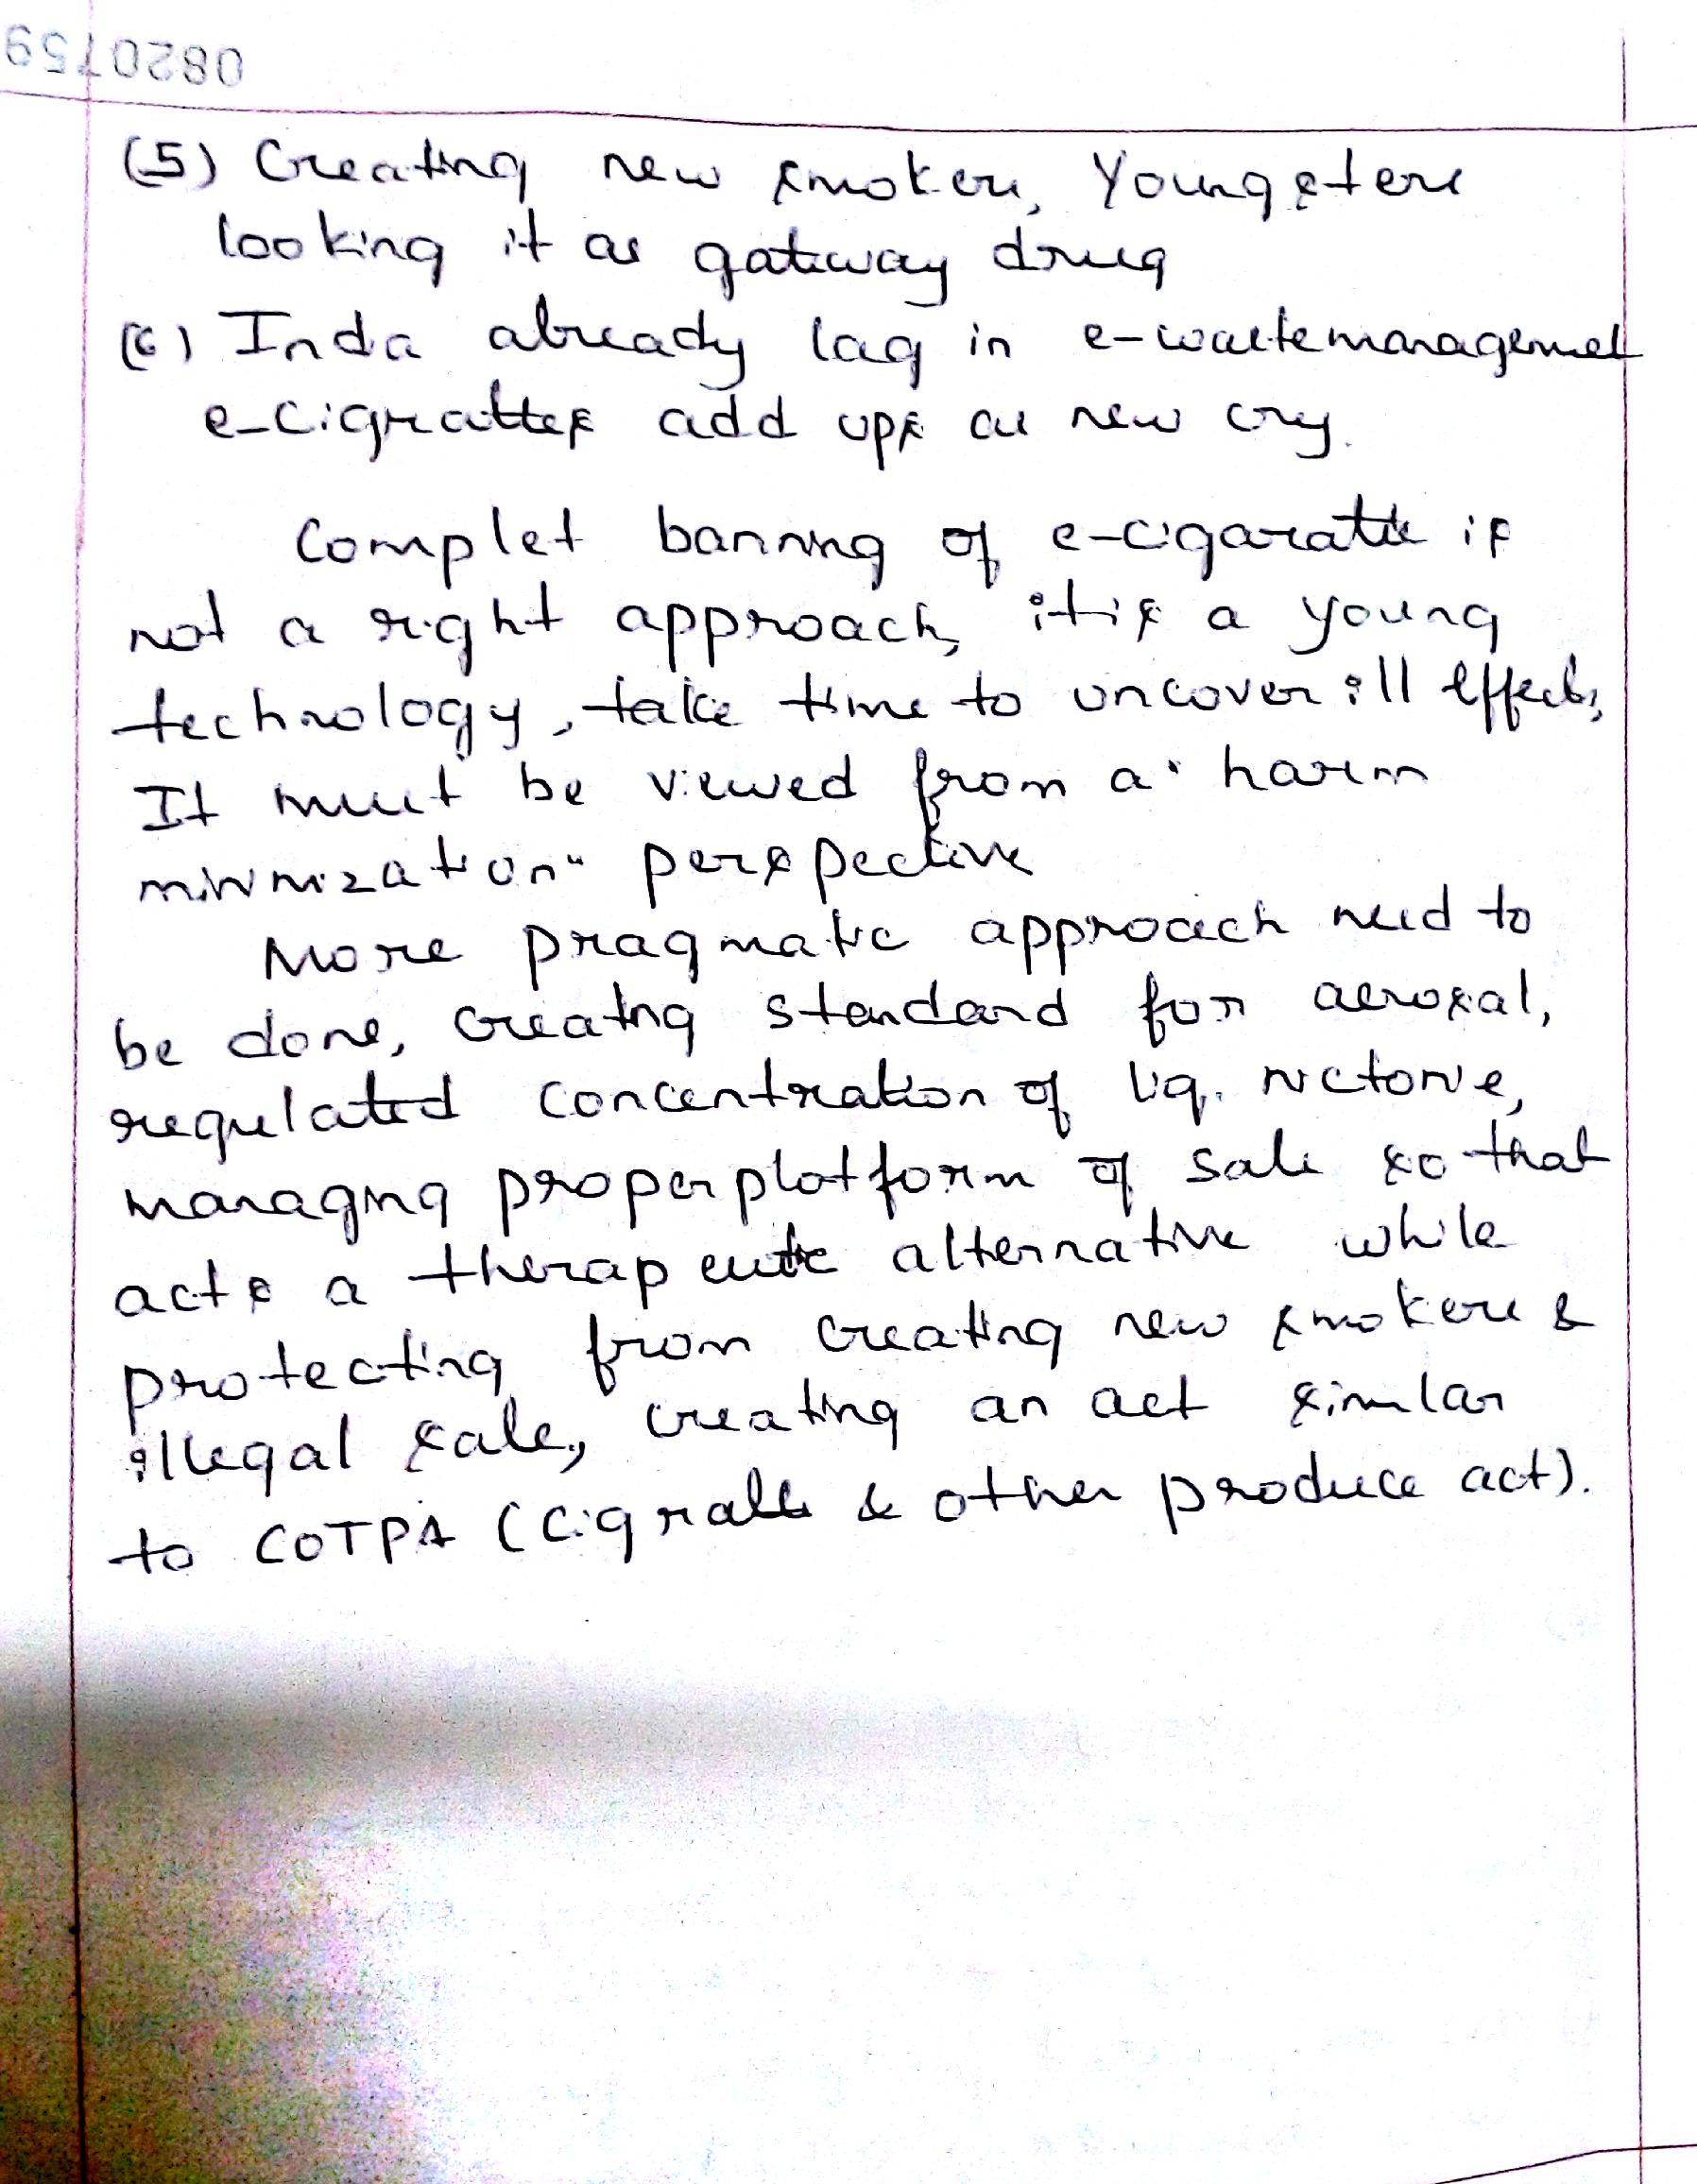 0820759
(5) Creating new smokers, Youngsters
looking it as gateway drug
(6) Inda already lag in e-waste managemet
e-cigrattes add ups as new cry.
Complet banning of e-cigaratte is
not a right approach, it is a young
technology, take time to uncover ill effects,
It must be viewed from a "harm
minimization" perspective
More pragmatic approach need to
be done, creating standard for aerosal,
regulated concentration of liq. nictoine,
managing proper platform of sale so that
acts a therapeutic alternative while
protecting from creating new smokers &
illegal sale, creating an act similar
to COTPA (Cigratte & other produce act).